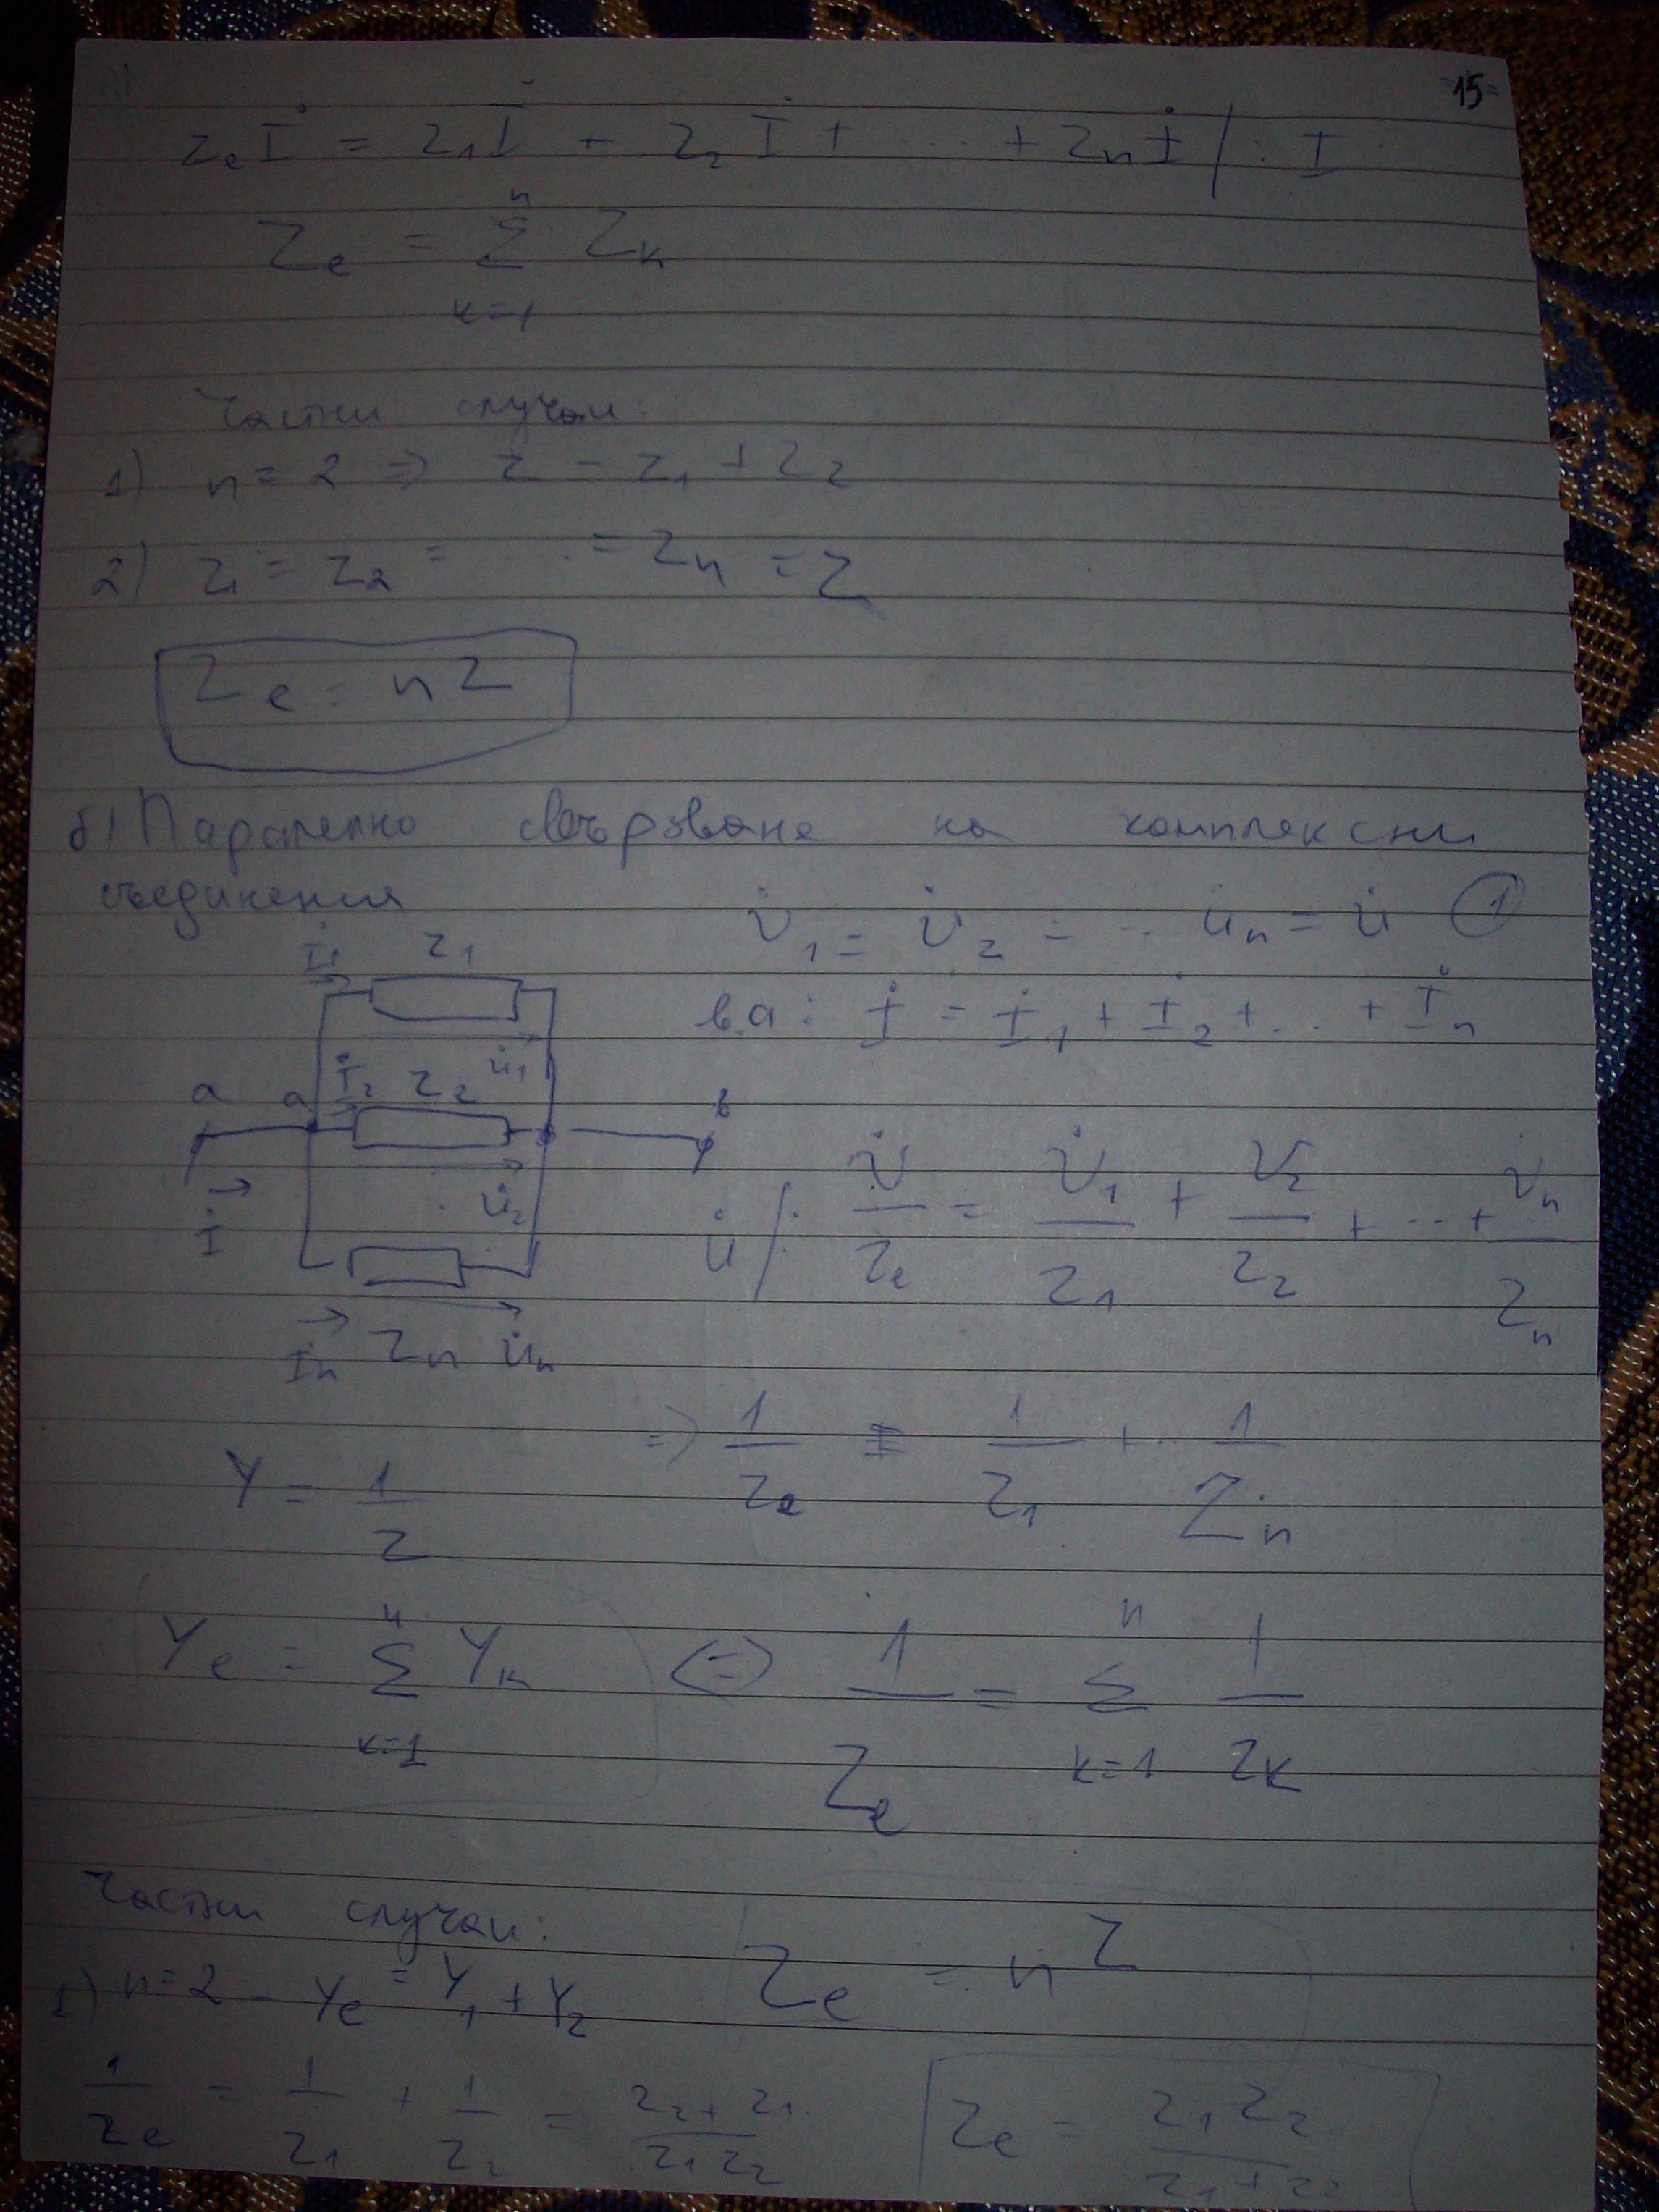 15
Z_e İ = Z_1 İ + Z_2 İ + ... + Z_n İ / : I
Z_e = Σ_{k=1}^{n} Z_k
Частни случаи:
1) n = 2 => Z = Z_1 + Z_2
2) Z_1 = Z_2 = ... = Z_n = Z
Z_e = nZ
б) Паралелно свързване на комплексни
съединения
U̇_1 = U̇_2 = ... U̇_n = U̇ (1)
İ_1 Z_1
в.a: İ = İ_1 + İ_2 + ... + İ_n
U̇_1
a a İ_2 Z_2 в
U̇_2
İ
U̇ /: U̇/Z_e = U̇_1/Z_1 + U̇_2/Z_2 + ... + U̇_n/Z_n
İ_n Z_n U̇_n
=> 1/Z_e = 1/Z_1 + .. 1/Z_n
Y = 1/Z
Y_e = Σ_{k=1}^{n} Y_k <=> 1/Z_e = Σ_{k=1}^{n} 1/Z_k
Частни случаи:
Z_e = nZ
1) n = 2 - Y_e = Y_1 + Y_2
1/Z_e = 1/Z_1 + 1/Z_2 = (Z_2 + Z_1)/(Z_1 Z_2)
Z_e = (Z_1 Z_2)/(Z_1 + Z_2)